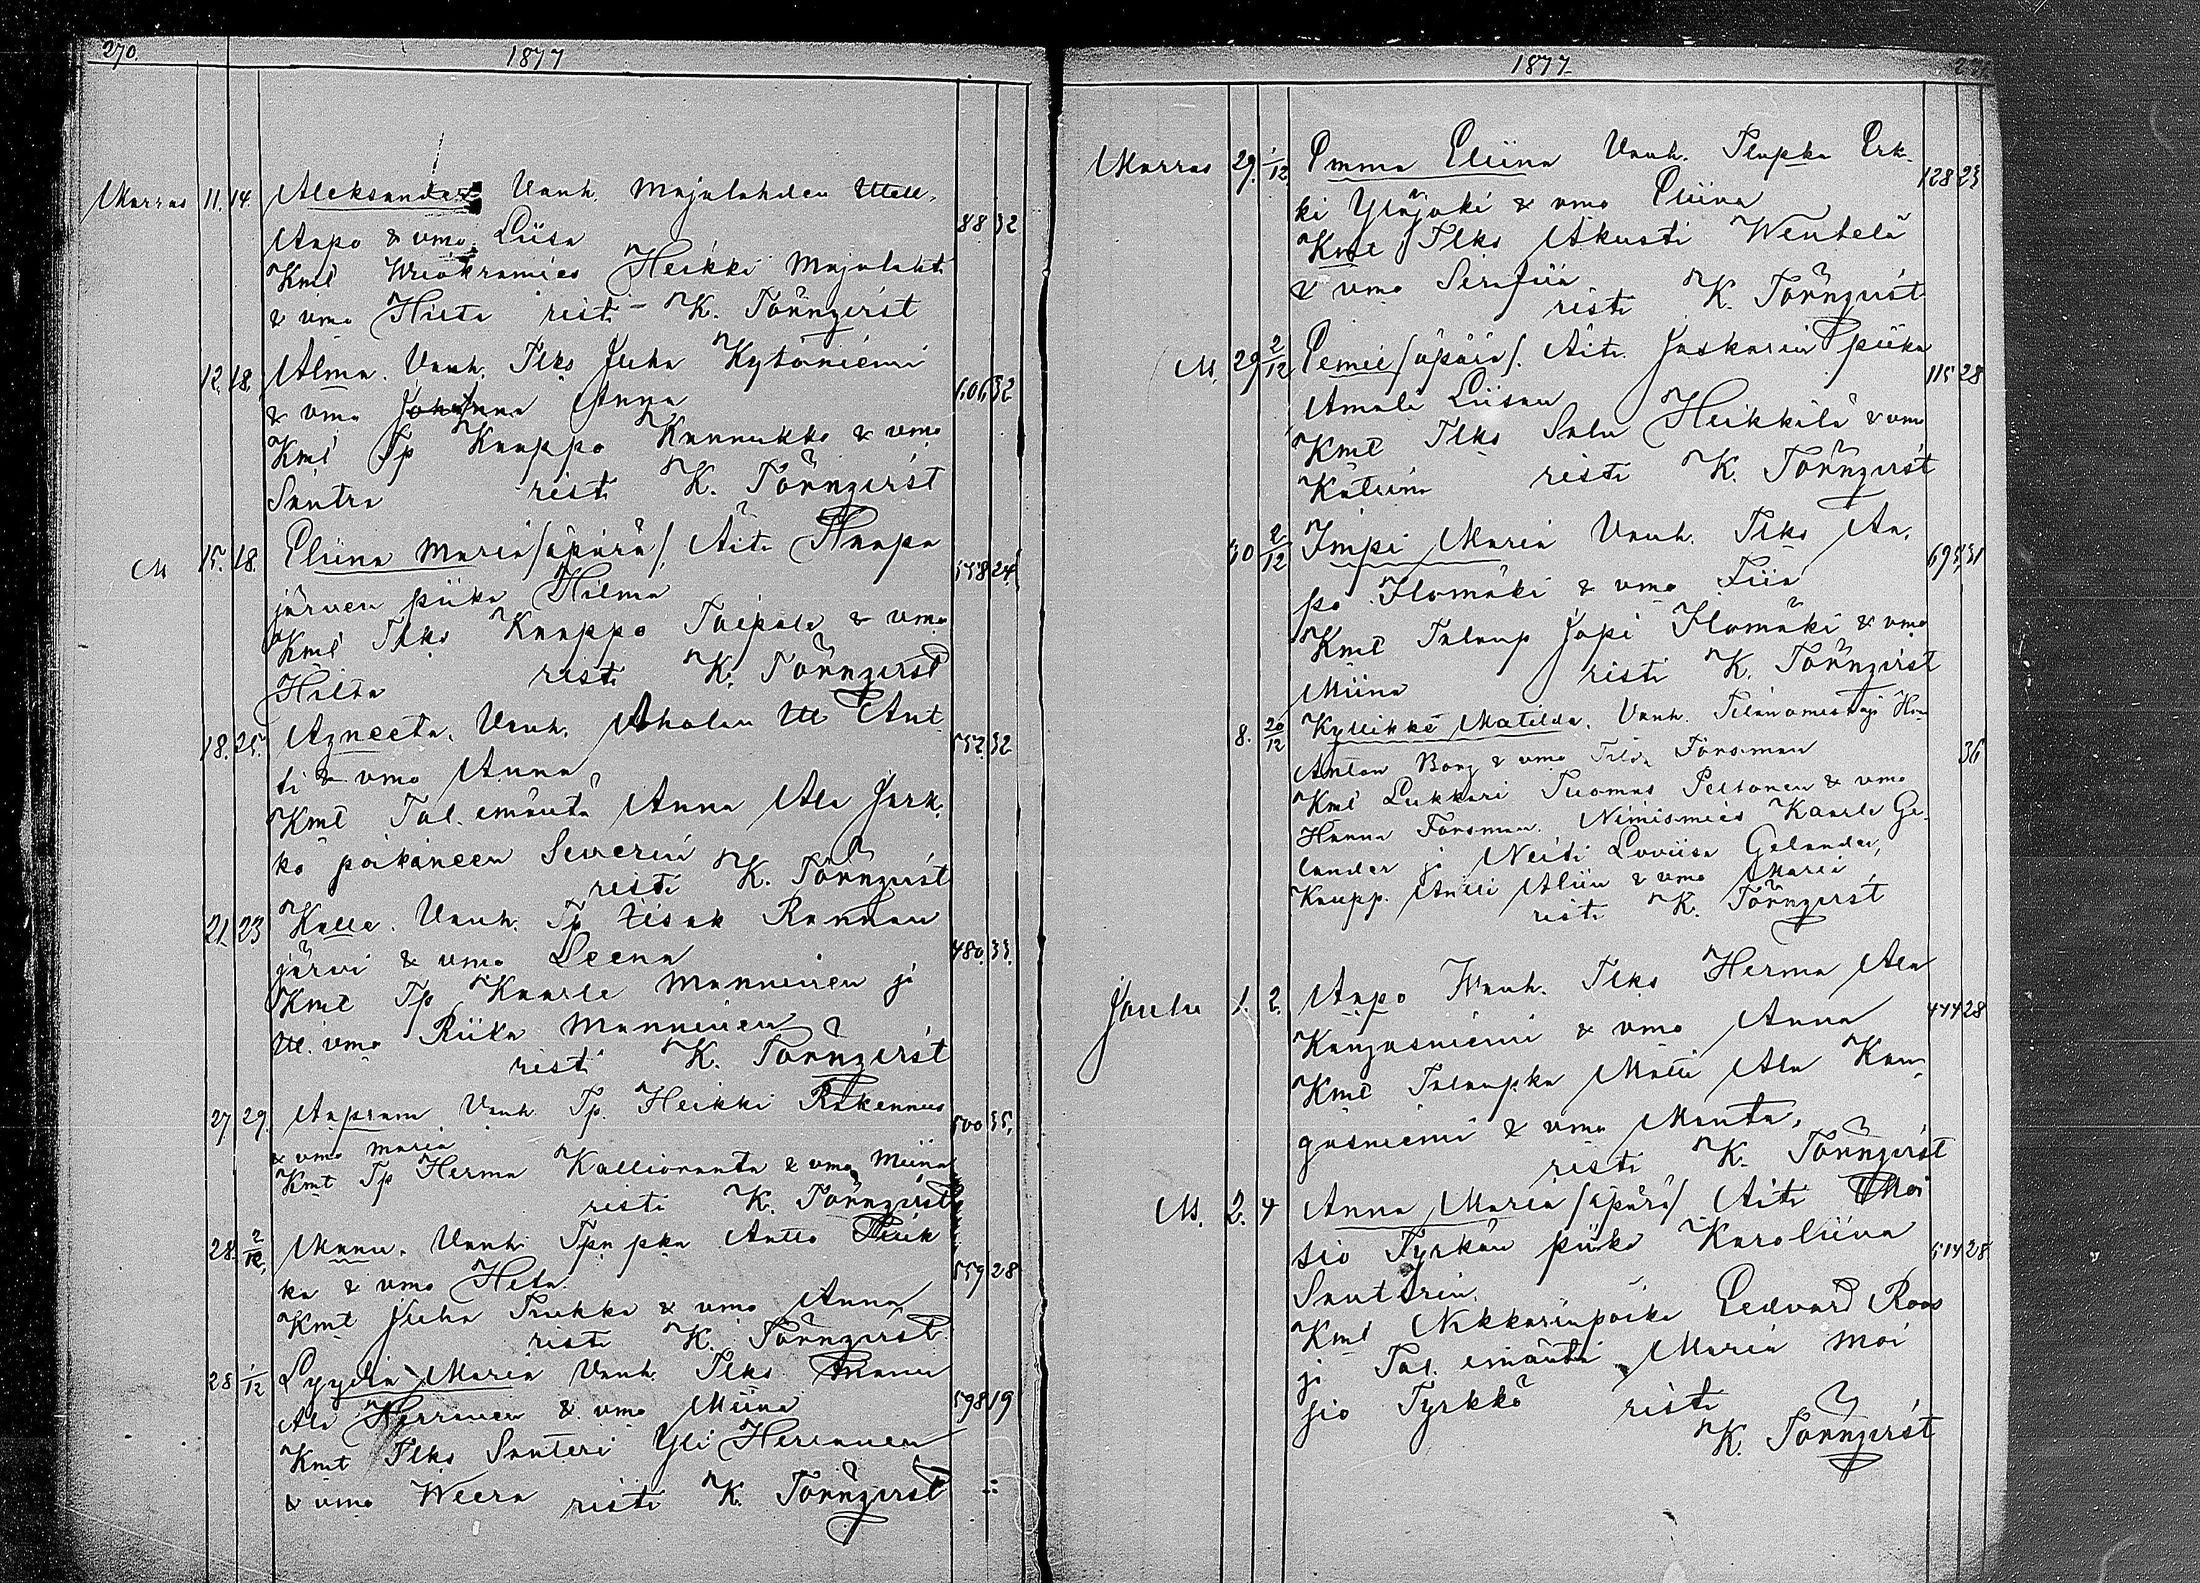 270.
1877
Marras 11. 14. Aleksander Vanh. Majalahden
Aapo & vmo Liisa 88 32
Kml Heikki Majalaht
& vmo risti K. Törnqvist
12. 18. Alma. Vanh. Ilks Juha Kytöniemi
& vmo Anna 606 32
Kml Tp Kaappo Kannukko & vmo
Santra risti K. Törnqvist
M 15. 18. Eliina Maria /äpärä/ Äiti Haapa
järven piika Hilma 558 24
Kml Ilks Kaappo Taipale & vmo
Hilta risti K. Törnqvist
18. 25. Agneeta. Vanh. Aholan Ant
ti & vmo Anna 552 32
Kml Tal. emäntä Anna Ala Jark
ko poikaneen Severin
risti K. Törnqvist
21. 23 Kalle. Vanh. Tp Iisak Rannan
järvi & vmo Leena 480. 33.
Kml Tp Kaarle Manninen ja
It. vmo Riika Manninen
risti K. Törnqvist
27 29. Aapram Vanh. Tp. Heikki Rakennus 500 35.
& vmo Maria
Kmt Tp Herma Kallioranta & vmo Miina
risti K. Törnqvist
28. 2/12. Manu. Vanh. Tpn pka Antto Heik
ka & vmo Heta 559 28
Kmt Juha & vmo Anna
risti K. Törnqvist
28 1/12 Lyydia Maria Vanh. Ilks Manu
Ala Herranen & vmo Miina 598 19
Kmt Ilks Santeri Yli Herranen
& vmo Weera risti K. Törnqvist
1877
Marras 29. 1/12 Emma Eliina Vanh. Tlapka Erk-
ki Yläjoki & vmo Eliina 128 23
Kml Ilks Akusti Wentelä
& vmo Serafiia
risti K. Törnqvist
M. 29 2/12 Eemil /äpärä/. Äiti Jaskarin piika
Amali Liisan 115 28
Kml Ilks Salu Heikkilä & vmo
Katriina risti K. Törnqvist
30 2/12 Impi Maria Vanh. Ilks Aa-
po Ilomäki & vmo Fiia 695 31
Kml Talaup Japi Ilomäki & vmo
Miina risti K. Törnqvist
8. 20/12 Kyllikki Matilda. Vanh. Tilanomistaja Her
Anton Borg & vmo Tilda Forsman 36
Kml Lukkari Tuomas Peltonen & vmo
Hanna Forsman. Nimismies Kaarle Ge-
lander ja Neiti Loviisa Gelander,
Kaupp. Antti Aliin & vmo Maria
risti K. Törnqvist
Joulu 1. 2. Aapo Wanh. Ilks Herma Ala
Kangasniemi & vmo Anna 444 28
Kml Talaupka Matti Ala Kan-
gasniemi & vmo Manta.
risti K. Törnqvist
M. 2. 4 Anna Maria /äpärä/ Äiti Moi
sio Tyrkön piika Karoliina 514 28
Santtrin.
Kml Nikkarinpoika Eedvard Roos
ja Tal. emäntä Maria Moi
sio Tyrkkö risti
K. Törnqvist